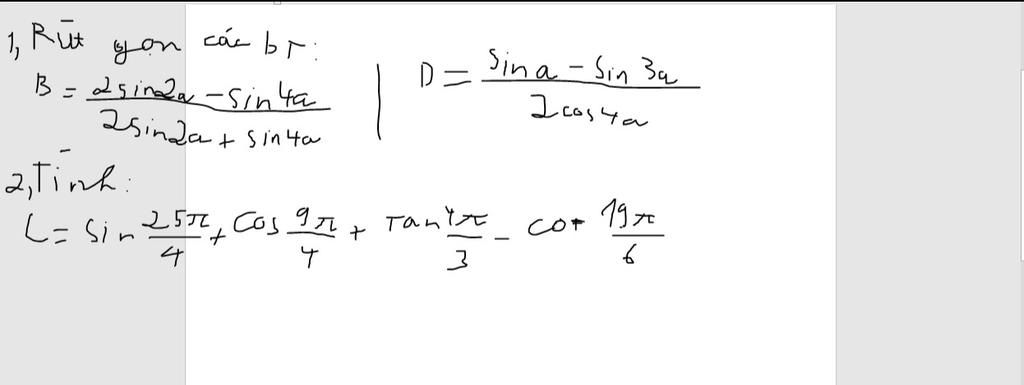 1, Rút gọn các bT:
B = (2sin2a - sin4a)/(2sin2a + sin4a) | D = (sina - sin3a)/(2cos4a)
2, Tính:
L = sin 25π/4 + cos 9π/4 + tan 4π/3 - cot 19π/6